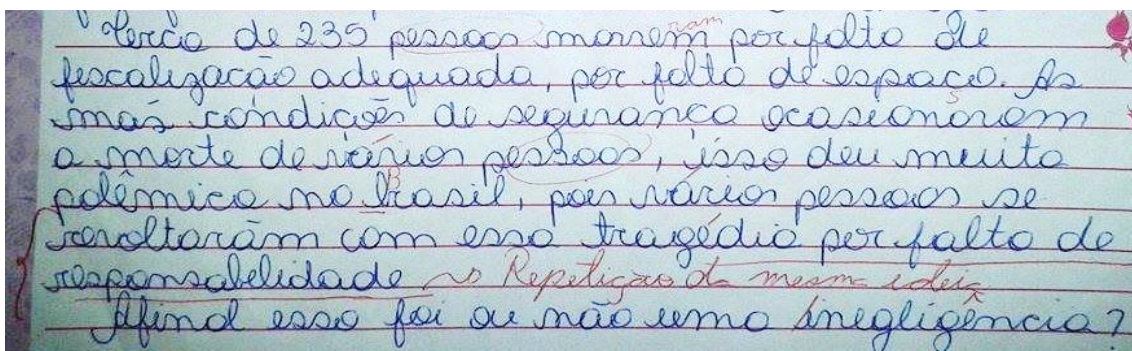 Cerca de 235 pessoas morrem ram por falta de
fiscalização adequada, por falta de espaço. As
más condições de segurança ocasionaram
a morte de várias pessoas, isso deu muita
polêmica no Brasil, pois várias pessoas se
revoltarãm com essa tragédia por falta de
responsabelidade ~> Repetição da mesma ideia
Afinal esso foi ou não uma inegligência?